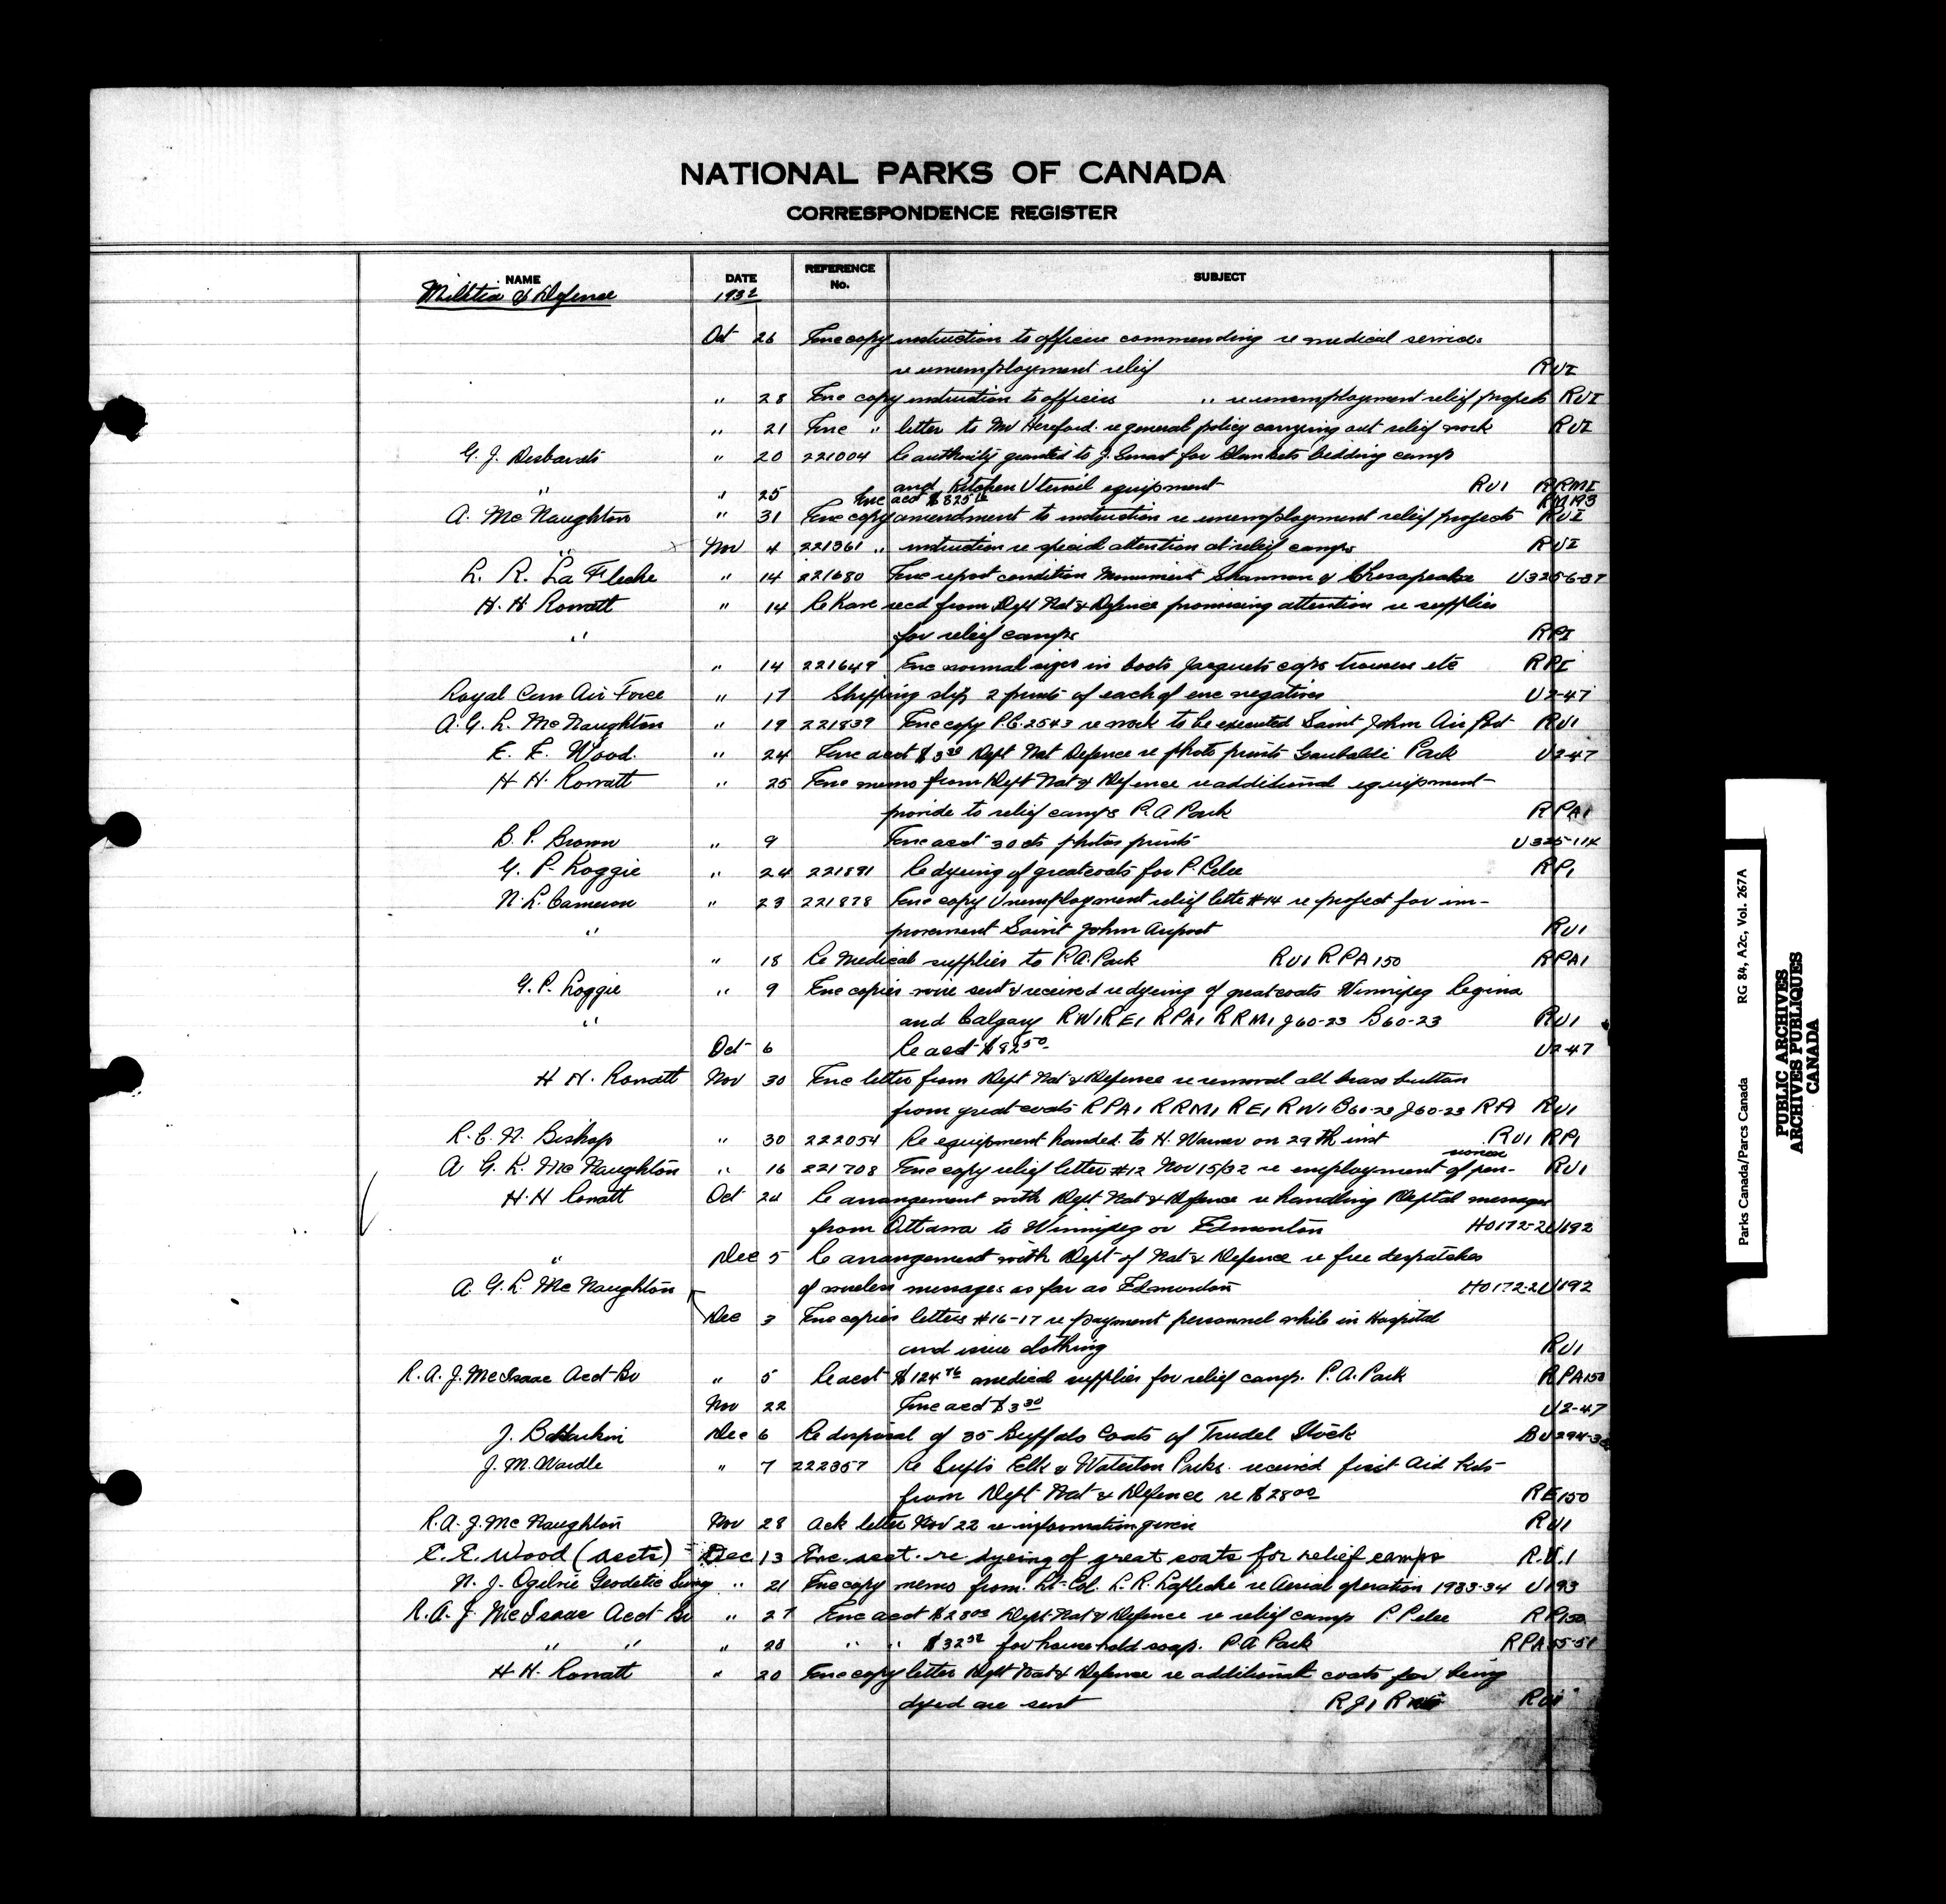 NATIONAL PARKS OF CANADA
CORRESPONDENCE REGISTER
NAME DATE REFERENCE No. SUBJECT
Militia & Defence 1932
Oct 26 Enc copy instruction to officers commanding re medical services
re unemployment relief RU1
" 28 Enc copy instruction to officers " re unemployment relief projects RU1
" 21 Enc " letter to Mr Hereford re general policy carrying out relief work RU1
G. J. Desbarats " 20 221004 Re authority granted to J. Smart for blankets bedding camp
and Kitchen Utensil equipment RU1 RRM1
" " 25 Enc acct $825 RM193
A. McNaughton " 31 Enc copy amendment to instruction re unemployment relief projects RU1
" Nov 4 221361 " instruction re special attention at relief camps RU1
L. R. LaFleche " 14 221680 Enc report condition Monument Shannon & Chesapeake U325-6-37
H. H. Rowatt " 14 Re Kare recd from Dept Nat & Defence promising attention re supplies
" for relief camps RP1
" 14 221649 Enc normal sizes in boots jacquets caps trousers etc RP1
Royal Can Air Force " 17 Shipping slip 2 prints of each of enc negatives U2-47
A. G. L. McNaughton " 19 221839 Enc copy P.C. 2543 re work to be executed Saint John Air Port RU1
E. E. Wood. " 24 Enc acct $3 30 Dept Nat Defence re photo prints Garibaldi Park U2-47
H H. Rowatt " 25 Enc memo from Dept Nat & Defence re additional equipment
provide to relief camps P. A Park RPA1
B. P. Brown " 9 Enc acct 30 cts photos prints U325-114
G. P. Loggie " 24 221891 Re dyeing of greatcoats for P. Pelee RP1
N. L. Cameron " 23 221878 Enc copy Unemployment relief letter #14 re project for im-
" provement Saint John airport RU1
" 18 Re Medical supplies to P. A. Park RU1 RPA150 RPA1
G. P. Loggie " 9 Enc copies wire sent & received re dyeing of greatcoats Winnipeg Regina
" and Calgary RW1 RE1 RPA1 RRM1 J60-23 B60-23 RU1
Oct 6 Re acct $82 50 U2-47
H H. Rowatt Nov 30 Enc letter from Dept Nat & Defence re removal all brass button
from great coats RPA1 RRM1 RE1 RW1 B60-23 J60-23 RA RU1
R. C. N. Bishop " 30 222054 Re equipment handed to H. Warner on 29th inst RU1 RP1
A G. L. McNaughton " 16 221708 Enc copy relief letter #12 Nov 15/32 re employment of pen- sioner RU1
H. H Rowatt Oct 24 Re arrangement with Dept. Nat & Defence re handling Deptal messages
from Ottawa to Winnipeg or Edmonton H0172-2 U192
" Dec 5 Re arrangement with Dept of Nat & Defence re free despatches
A. G. L. McNaughton of wireless messages as far as Edmonton H0172-2 U192
Dec 3 Enc copies letters #16-17 re payment personnel while in Hospital
and issue clothing RU1
R. A. J. McIsaac Acct-Br " 5 Re acct $124 76 medical supplies for relief camp. P. A. Park RPA150
Nov 22 Enc acct $3 30 U2-47
J. B Harkin Dec 6 Re disposal of 35 Buffalo Coats of Trudel Stock BU294-
J. M. Wardle " 7 222367 Re Supts Elk & Waterton Parks received first Aid Kits
from Dept Nat & Defence re $28 00 RE150
R. A. J. McNaughton Nov 28 Ack letter Nov 22 re information given RU1
E. E. Wood (accts) Dec 13 Enc. acct. re dyeing of great coats for relief camps R.U.1
N. J. Ogilvie Geodetic Survey " 21 Enc copy memo from Lt-Col. L. R. Lafleche re Aerial operation 1933-34 U193
R. A. J. McIsaac Acct Br " 27 Enc acct $28 00 Dept. Nat & Defence re relief camp P. Pelee RP150
" " " 28 " " $32 50 for household soap. P. A Park RPA55-51
H H. Rowatt " 20 Enc copy letter Dept Nat & Defence re additional coats for being
dyed are sent RJ1 RU1
Parks Canada/Parcs Canada RG 84, A2c, Vol. 267A
PUBLIC ARCHIVES
ARCHIVES PUBLIQUES
CANADA